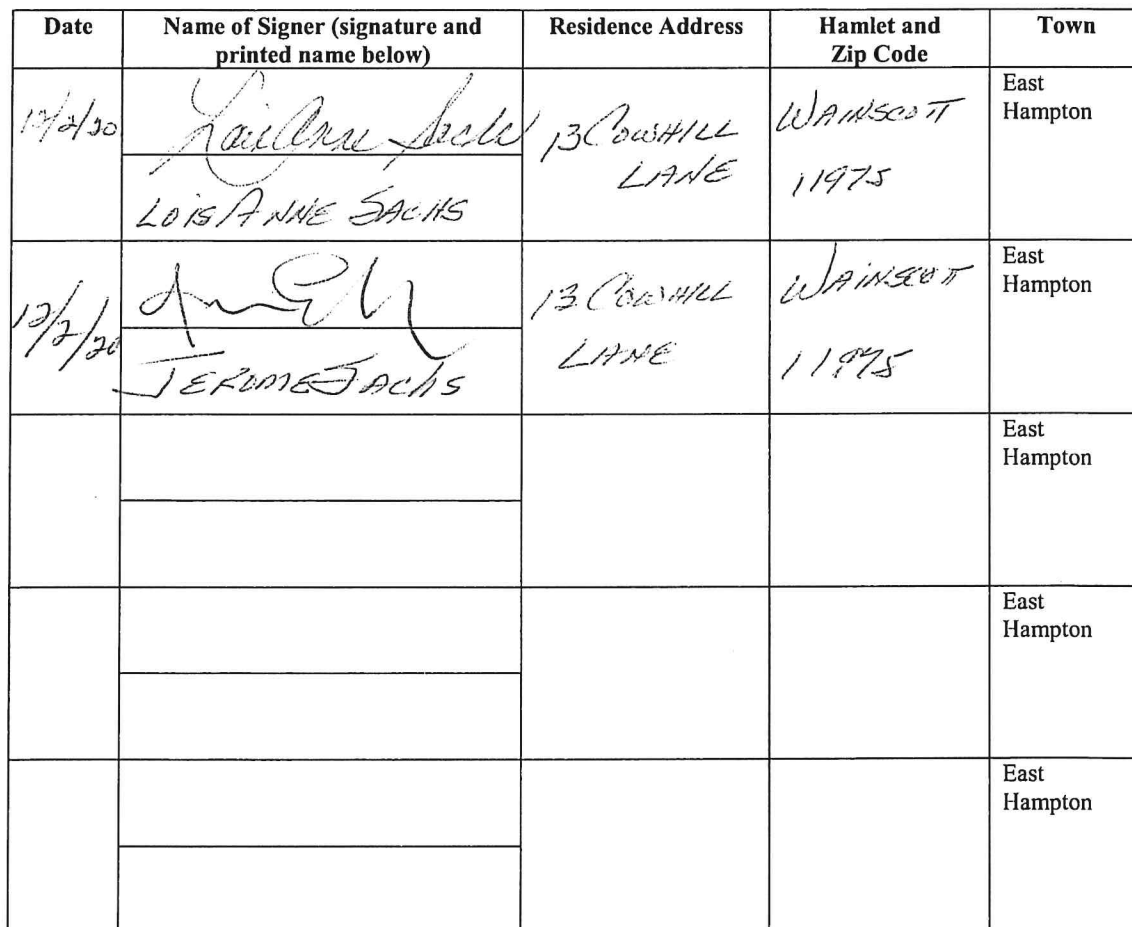 Date
Name of Signer (signature and
printed name below)
Residence Address
Hamlet and
Zip Code
Town
12/2/20
Lois Anne Sachs
LOIS ANNE SACHS
13 COWHILL
LANE
WAINSCOTT
11975
East
Hampton
12/2/20
JEROME SACHS
13 COWHILL
LANE
WAINSCOTT
11975
East
Hampton
East
Hampton
East
Hampton
East
Hampton